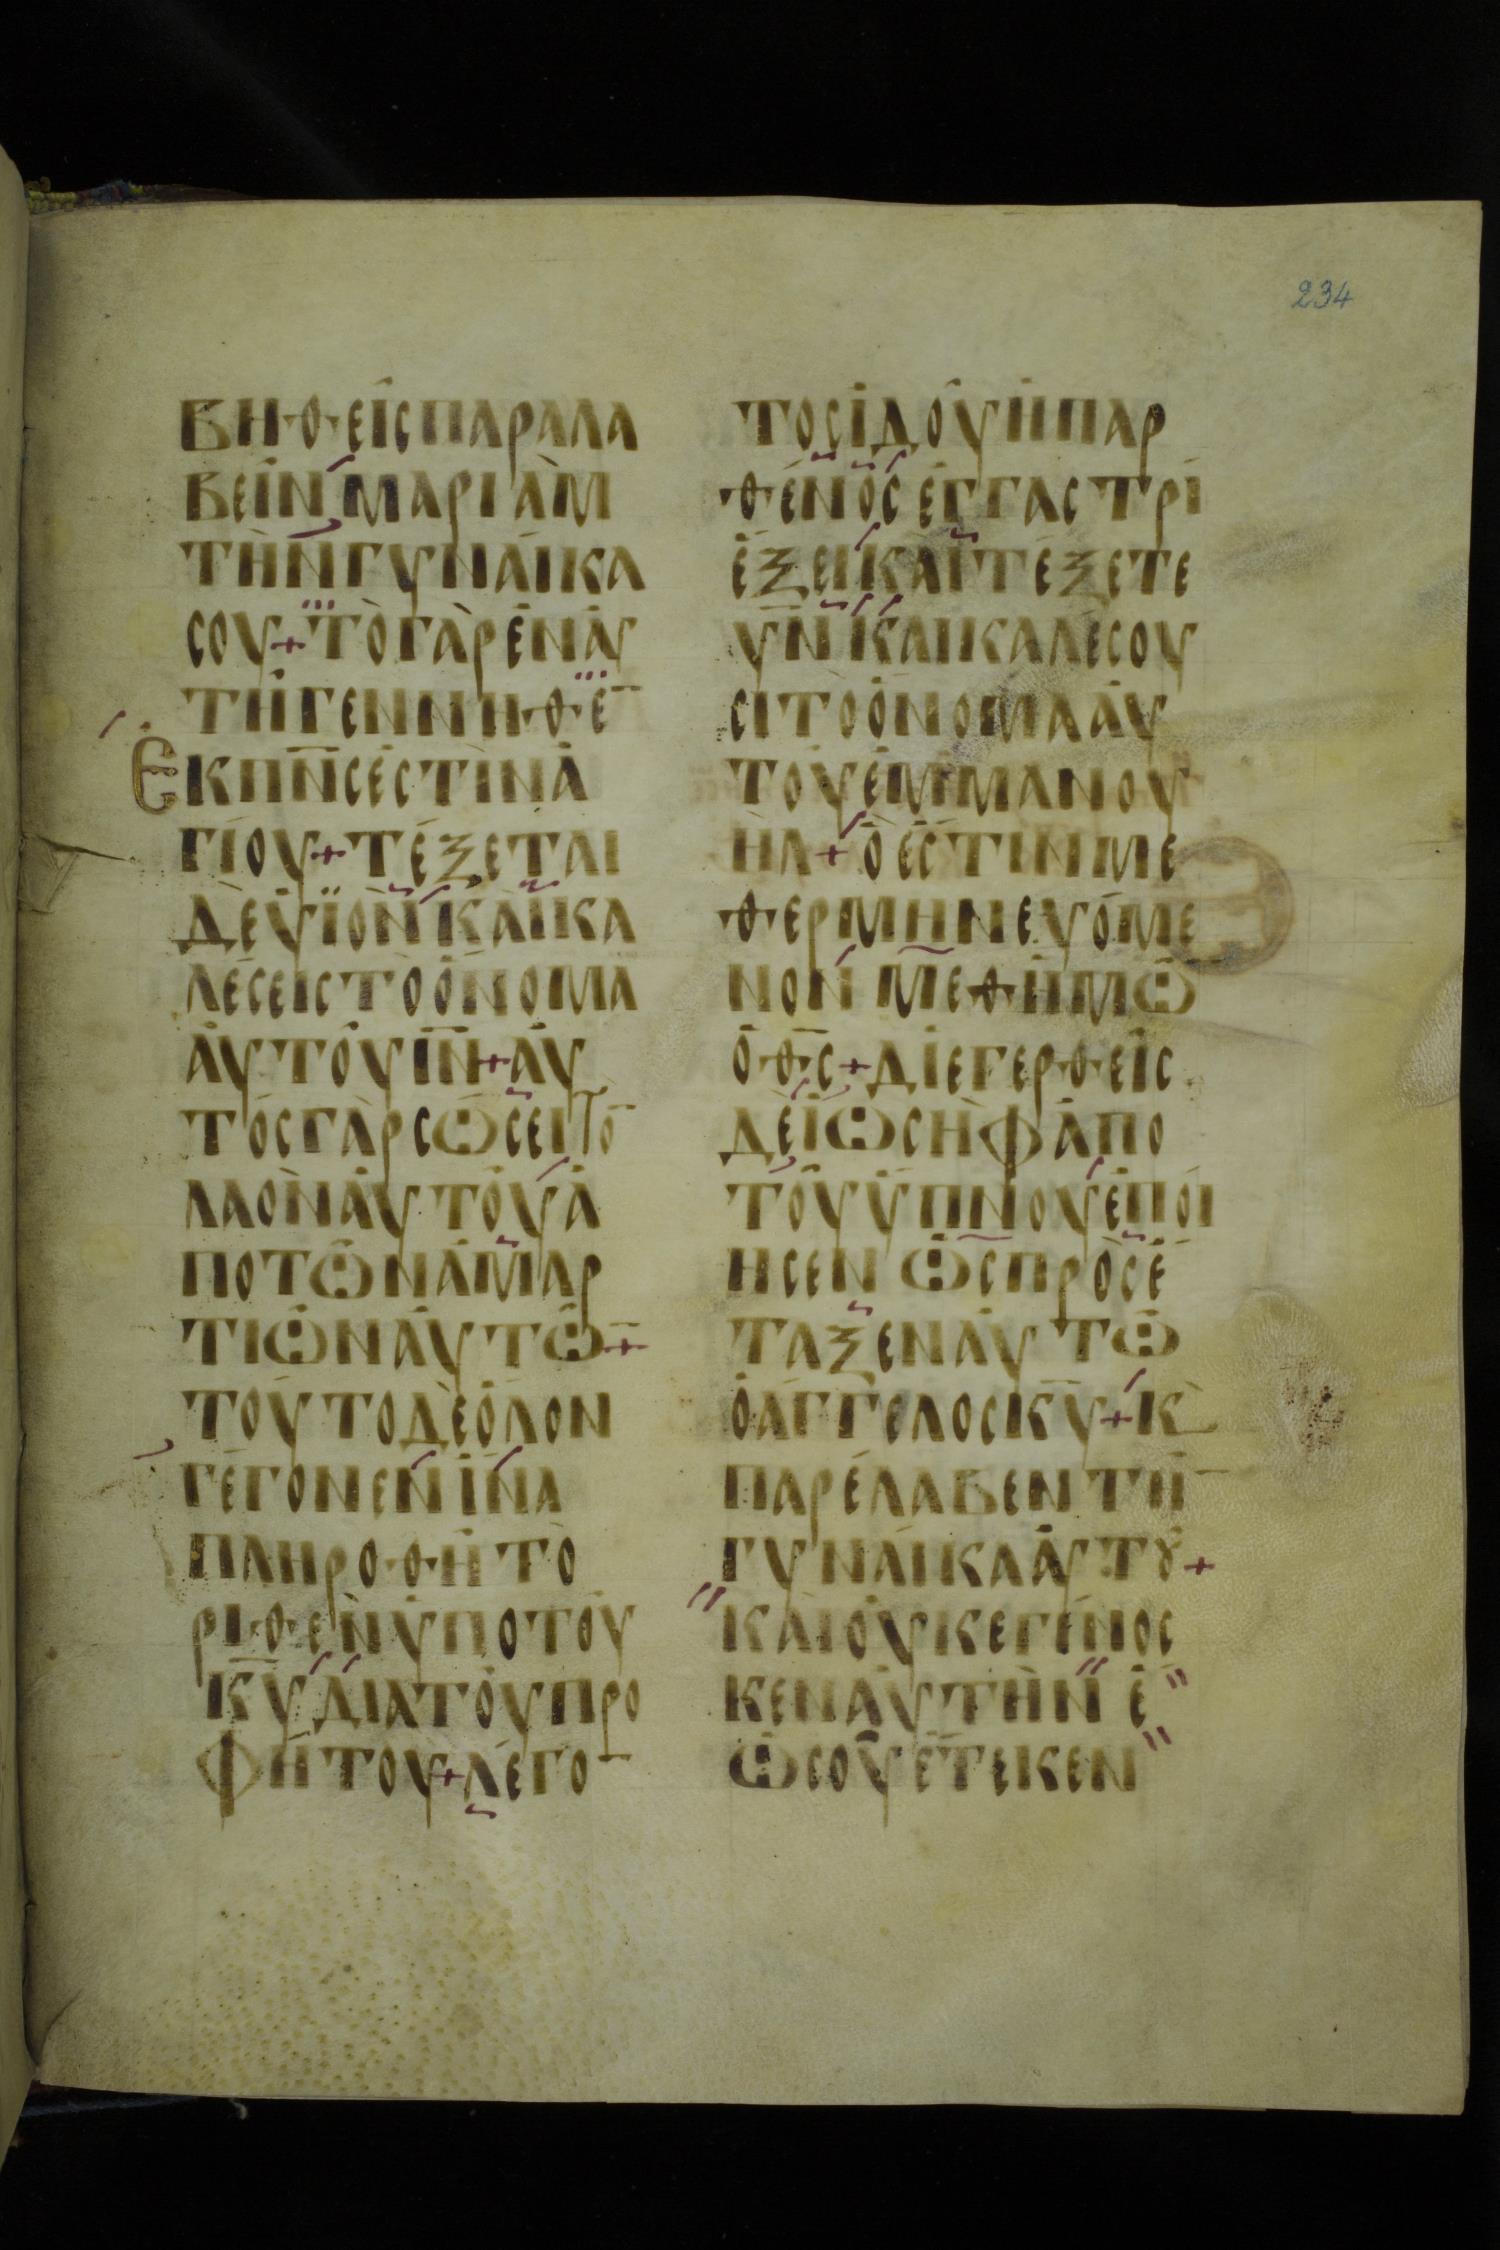 234
ΒΗΘΕΙ͂ΣΠΑΡΑΛΑ
ΒΕΙ͂ΝΜΑΡΙᾺΜ
ΤῊΝΓΥΝΑΙ͂ΚΑ
ΣΟΥ+ΤῸΓᾺΡἘΝᾺΥ
ΤΗ͂ΓΕΝΝΗΘΕ̄
ἘΚΠ̅Ν̅ΣἘΣΤῚΝἈ
ΓΊΟΥ+ΤΈΞΕΤΑΙ
ΔῈΥἹῸΝΚΑῚΚΑ
ΛΈΣΕΙΣΤῸὌΝΟΜΑ
ἈΥΤΟΥ͂Ι̅Ν̅+ἈΥ
ΤΌΣΓᾺΡΣΩΣΕΙΤΟ̄
ΛΑῸΝἈΥΤΟΥ͂Ἀ
ΠΟΤΩ͂ΝἉΜΑΡ
ΤΙΩ͂ΝἈΥΤΩ̄+
ΤΟΥ͂ΤΟΔῈὍΛΟΝ
ΓΈΓΟΝΕΝἹΝΑ
ΠΛΗΡΟΘΗ͂ΤῸ
ΡΙΘῈΝὙΠΟΤΟΥ͂
Κ̅Υ̅ΔΙΑΤΟΥ͂ΠΡΟ
ΦΉΤΟΥ+ΛΈΓΟ̄
ΤΟΣἸΔΟΎἩΠΑΡ
ΘΈΝΟΣἘΓΓΑΣΤΡῚ
ἝΞΕΙΚΑῚΤΈΞΕΤΕ
Υ̅Ν̅ΚΑΙΚΑΛΈΣΟΥ
ΣΙΤῸὌΝΟΜΑἈΥ
ΤΟΥ͂ἘΜΜΑΝΟΥ
ῊΛ+ὍἘΣΤΙΝΜΕ
ΘΕΡΜΗΝΕΥΌΜΕ
ΝΟΝΜΕΘἩΜΩ̄
ὉΘ̅Σ̅+ΔΙΕΓΕΡΘΕῚΣ
ΔῈἸΩΣῊΦἈΠΟ
ΤΟΥ͂ὝΠΝΟΥἘΠΟΙ
ΗΣΕΝὩΣΠΡΟΣΈ
ΤΑΞΕΝἈΥΤΩ͂
ὉἌΓΓΕΛΟΣΚ̅Υ̅+Κ̀
ΠΑΡΈΛΑΒΕΝΤΗ̄
ΓΥΝΑΙ͂ΚΑἈΥΤȢ͂+
ΚΑῚΟΥ̓ΚΕΓΕΊΝΟΣ
ΚΕΝἈΥΤῊΝἙ
ὩΣΟΥ͂ἘΤΕΚΕΝ